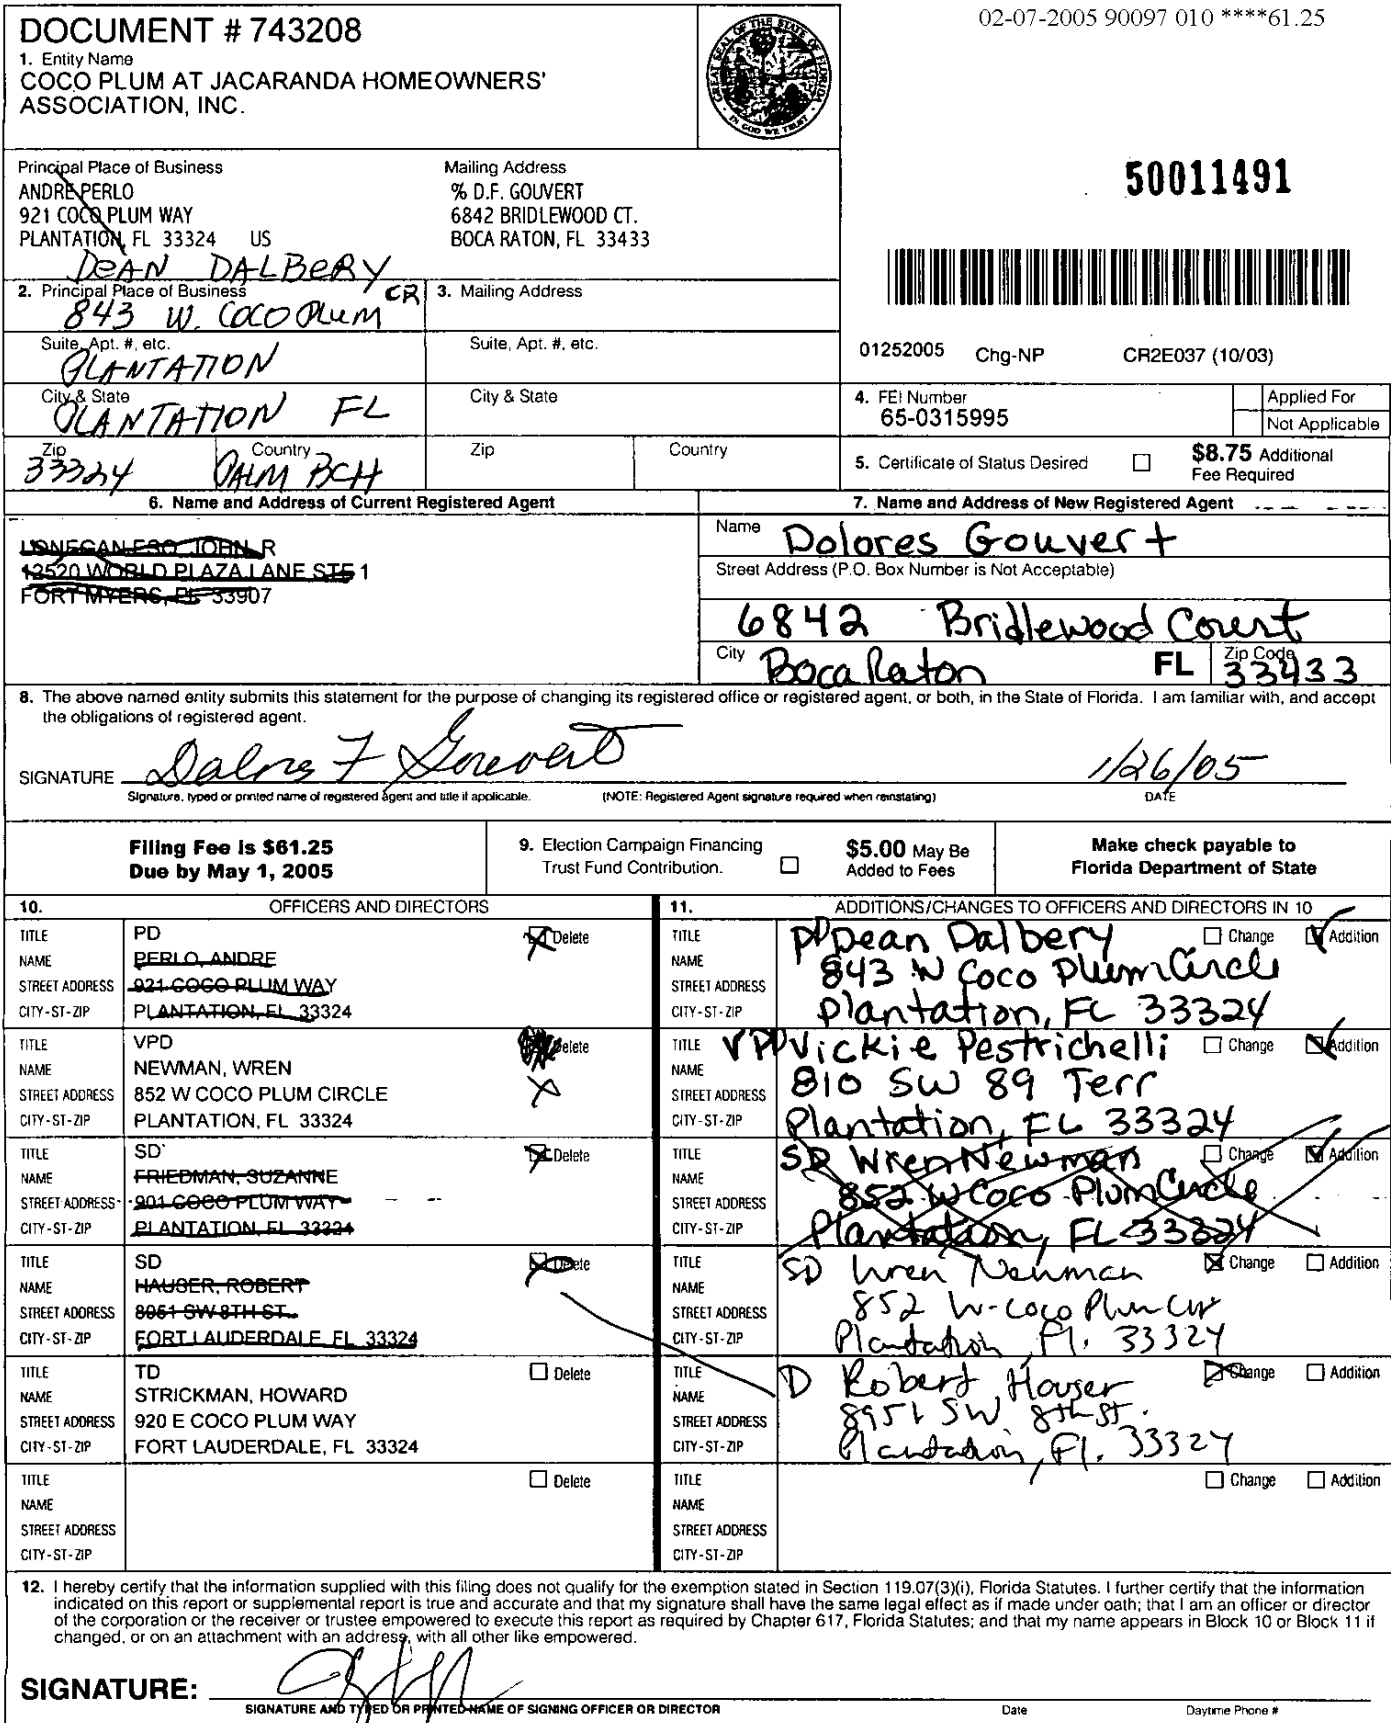 DOCUMENT # 743208
02-07-2005 90097 010 ****61.25
1. Entity Name
COCO PLUM AT JACARANDA HOMEOWNERS'
ASSOCIATION, INC.
GREAT SEAL OF THE STATE OF FLORIDA
IN GOD WE TRUST
Principal Place of Business
ANDRE PERLO
921 COCO PLUM WAY
PLANTATION, FL 33324 US
Mailing Address
% D.F. GOUVERT
6842 BRIDLEWOOD CT.
BOCA RATON, FL 33433
50011491
DEAN DALBERY
2. Principal Place of Business
843 W. COCO PLUM CR
3. Mailing Address
Suite, Apt. #, etc.
PLANTATION
Suite, Apt. #, etc.
01252005 Chg-NP CR2E037 (10/03)
City & State
PLANTATION FL
City & State
4. FEI Number
65-0315995
Applied For
Not Applicable
Zip
33324
Country
PALM BCH
Zip
Country
5. Certificate of Status Desired
$8.75 Additional
Fee Required
6. Name and Address of Current Registered Agent
LONEGAN ESQ, JOHN R
12520 WORLD PLAZA LANE STE 1
FORT MYERS, FL 33907
7. Name and Address of New Registered Agent
Name
Dolores Gouvert
Street Address (P.O. Box Number is Not Acceptable)
6842 Bridlewood Court
City
Boca Raton
FL
Zip Code
33433
8. The above named entity submits this statement for the purpose of changing its registered office or registered agent, or both, in the State of Florida. I am familiar with, and accept
the obligations of registered agent.
SIGNATURE Dolores F Gouvert 1/26/05
Signature, typed or printed name of registered agent and title if applicable. (NOTE: Registered Agent signature required when reinstating) DATE
Filing Fee is $61.25
Due by May 1, 2005
9. Election Campaign Financing
Trust Fund Contribution.
$5.00 May Be
Added to Fees
Make check payable to
Florida Department of State
10. OFFICERS AND DIRECTORS
TITLE PD Delete
NAME PERLO, ANDRE
STREET ADDRESS 921 COCO PLUM WAY
CITY-ST-ZIP PLANTATION, FL 33324
TITLE VPD Delete
NAME NEWMAN, WREN
STREET ADDRESS 852 W COCO PLUM CIRCLE
CITY-ST-ZIP PLANTATION, FL 33324
TITLE SD Delete
NAME FRIEDMAN, SUZANNE
STREET ADDRESS 901 COCO PLUM WAY
CITY-ST-ZIP PLANTATION, FL 33324
TITLE SD Delete
NAME HAUSER, ROBERT
STREET ADDRESS 8951 SW 8TH ST.
CITY-ST-ZIP FORT LAUDERDALE, FL 33324
TITLE TD Delete
NAME STRICKMAN, HOWARD
STREET ADDRESS 920 E COCO PLUM WAY
CITY-ST-ZIP FORT LAUDERDALE, FL 33324
TITLE Delete
NAME
STREET ADDRESS
CITY-ST-ZIP
11. ADDITIONS/CHANGES TO OFFICERS AND DIRECTORS IN 10
TITLE PD Dean Dalbery Change Addition
NAME 843 W Coco Plum Circle
STREET ADDRESS
CITY-ST-ZIP Plantation, FL 33324
TITLE VPD Vickie Pestrichelli Change Addition
NAME 810 SW 89 Terr
STREET ADDRESS
CITY-ST-ZIP Plantation, FL 33324
TITLE SD Wren Newman Change Addition
NAME 852 W Coco Plum Circle
STREET ADDRESS
CITY-ST-ZIP Plantation, FL 33324
TITLE SD Wren Newman Change Addition
NAME
STREET ADDRESS 852 W-Coco Plum Cir
CITY-ST-ZIP Plantation, Fl. 33324
TITLE D Robert Hauser Change Addition
NAME
STREET ADDRESS 8951 SW 8th St.
CITY-ST-ZIP Plantation, Fl. 33324
TITLE Change Addition
NAME
STREET ADDRESS
CITY-ST-ZIP
12. I hereby certify that the information supplied with this filing does not qualify for the exemption stated in Section 119.07(3)(i), Florida Statutes. I further certify that the information
indicated on this report or supplemental report is true and accurate and that my signature shall have the same legal effect as if made under oath; that I am an officer or director
of the corporation or the receiver or trustee empowered to execute this report as required by Chapter 617, Florida Statutes; and that my name appears in Block 10 or Block 11 if
changed, or on an attachment with an address, with all other like empowered.
SIGNATURE:
SIGNATURE AND TYPED OR PRINTED NAME OF SIGNING OFFICER OR DIRECTOR Date Daytime Phone #